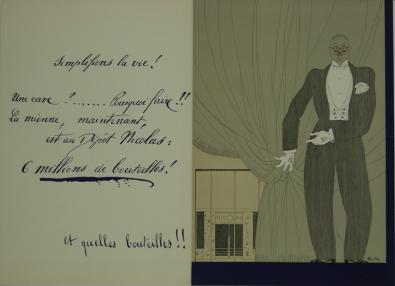 Simplifions la vie !
Une cave ?....... Pourquoi faire !!
La mienne, maintenant,
est au Dépôt Nicolas :
6 millions de bouteilles !
et quelles bouteilles !!
NICOLAS